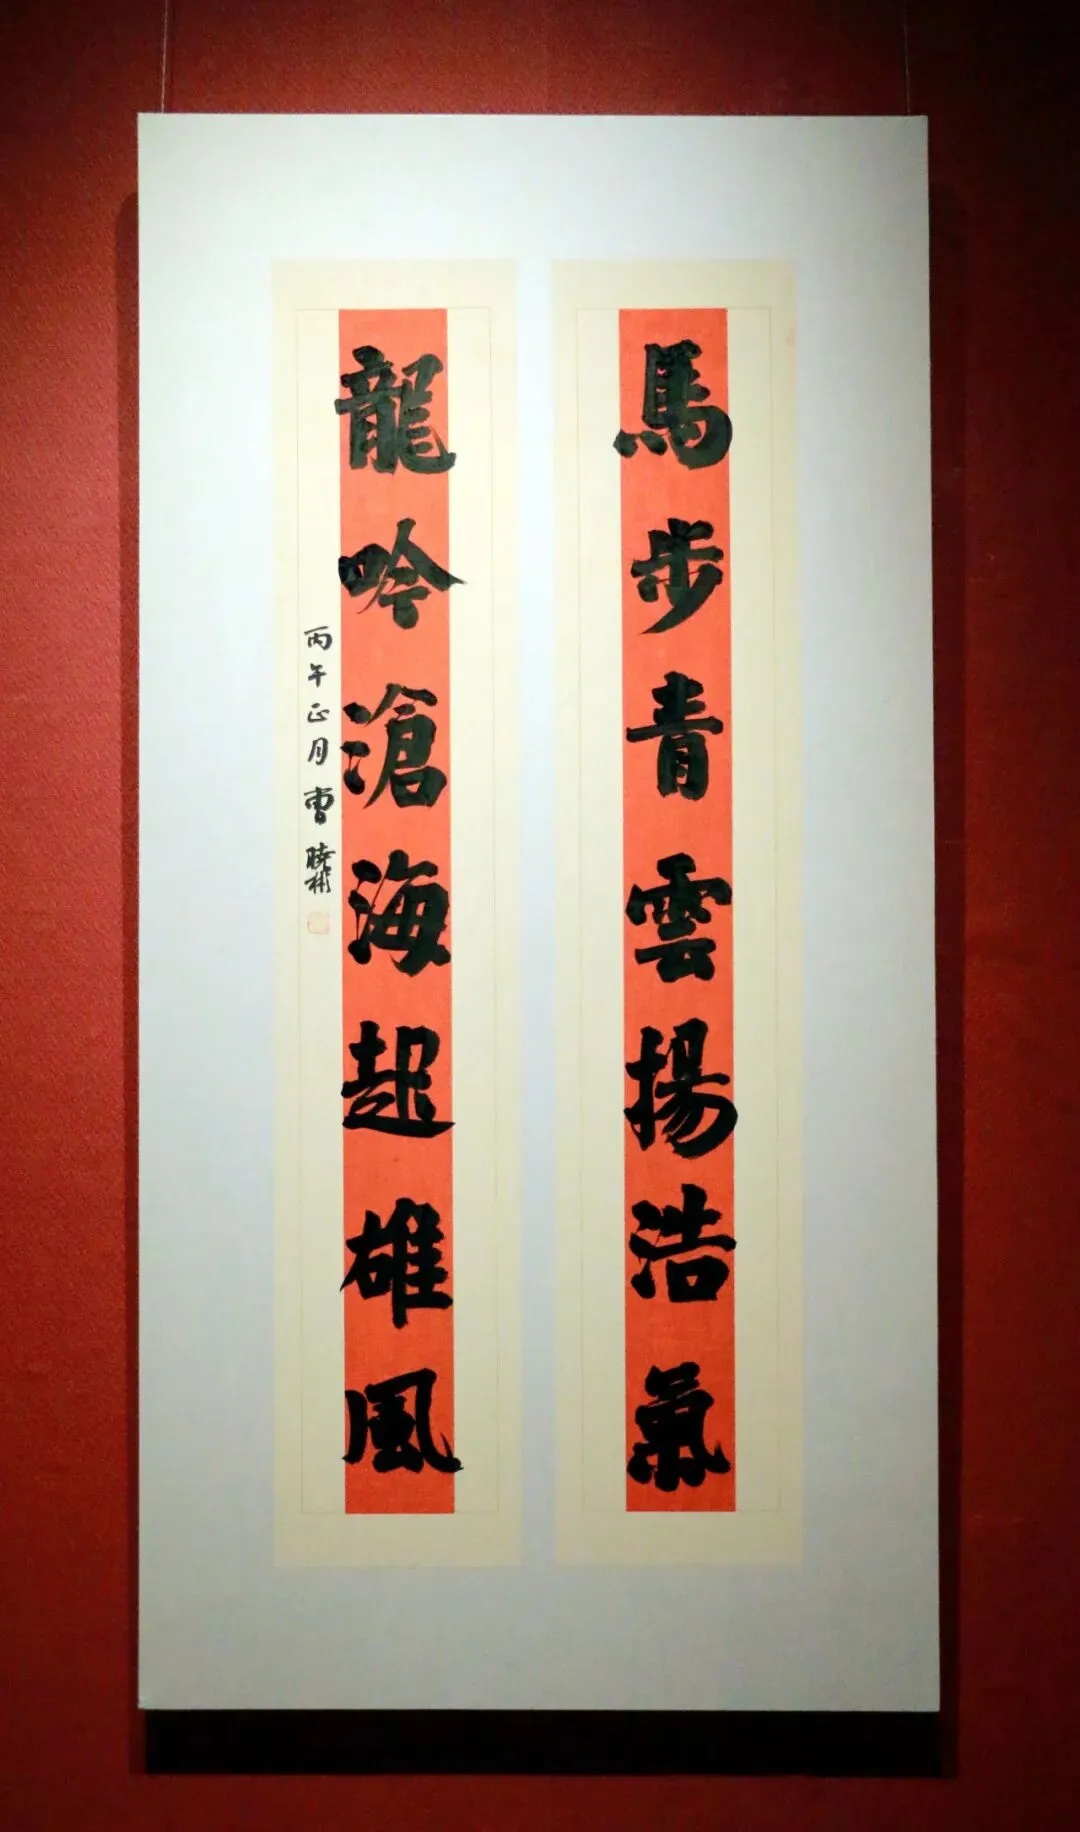 馬步青雲揚浩氣
龍吟滄海起雄風
丙午正月曹曉彬